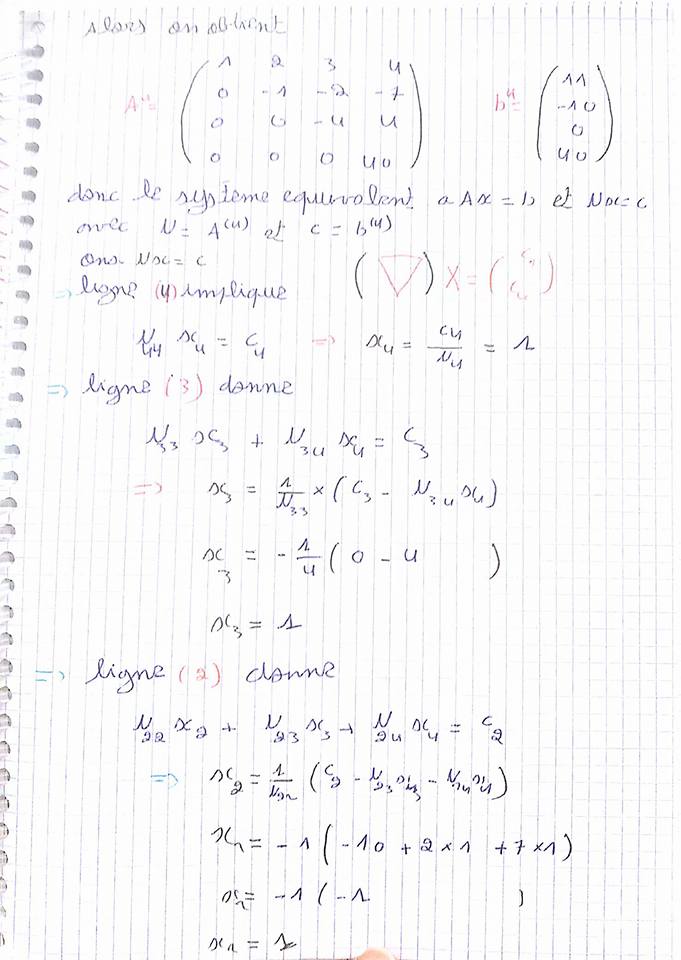 alors on obtient
A⁴ = ( 1 2 3 4
0 -1 -2 -7
0 0 -4 4
0 0 0 40 )
b⁴ = ( 11
-10
0
40 )
donc le système equivalent a Ax = b et Ux = c
avec U = A⁽⁴⁾ et c = b⁽⁴⁾
ona Ux = c
( ▽ ) X = ( c₁ c₄ )
⇒ ligne (4) implique
U₄₄ x₄ = c₄ ⇒ x₄ = c₄ / U₄ = 1
⇒ ligne (3) donne
U₃₃ x₃ + U₃₄ x₄ = c₃
⇒ x₃ = 1/U₃₃ × (c₃ - U₃₄ x₄)
x₃ = - 1/4 ( 0 - 4 )
x₃ = 1
⇒ ligne (2) donne
U₂₂ x₂ + U₂₃ x₃ + U₂₄ x₄ = c₂
⇒ x₂ = 1/U₂₂ (c₂ - U₂₃ x₃ - U₂₄ x₄)
x₂ = -1 ( -10 + 2 × 1 + 7 × 1 )
x₂ = -1 ( -1 )
x₂ = 1